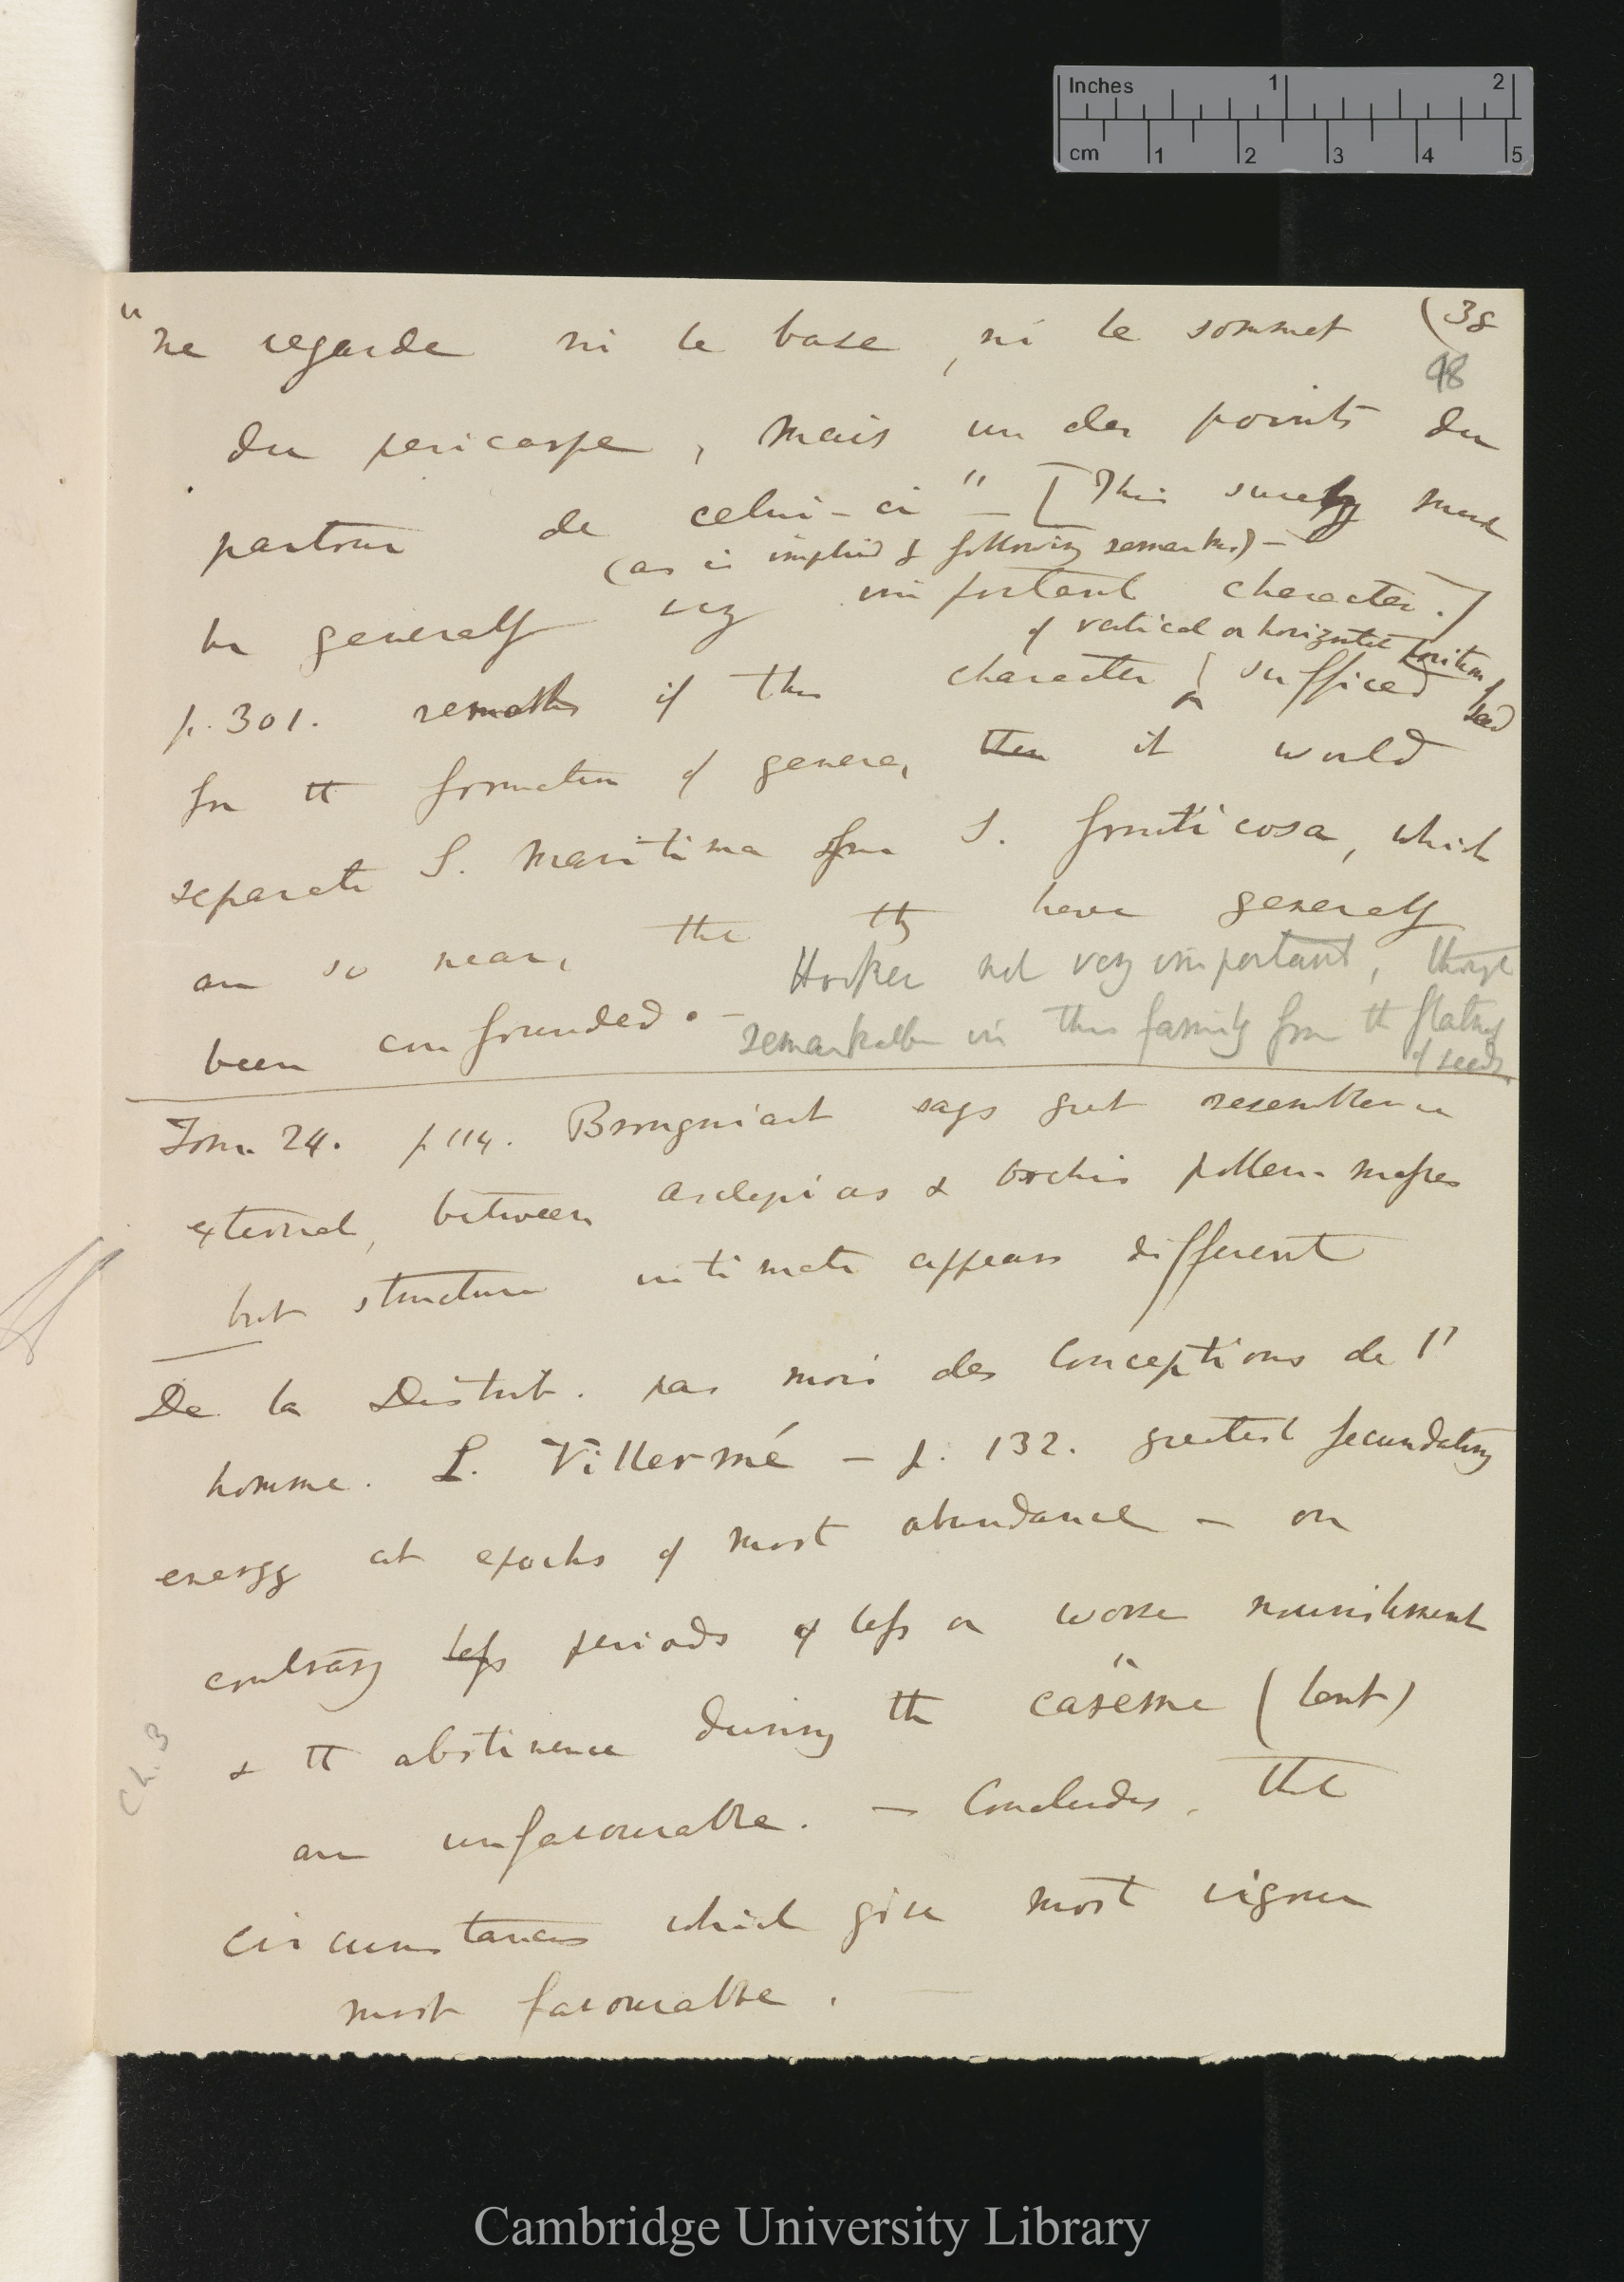 Inches 1 2
cm 1 2 3 4 5
"ne regarde ni le base, ni le sommet (38
98
du pericarpe, mais un des points du
partour de celui-ci" — [This surely must
(as is implied by following remarks) —
be generally very important character.]
of vertical or horizontal position of seed
p. 301. remarks if this character sufficed
for the formation of genera, then it would
separate S. maritima from S. fruticosa, which
are so near, that they have generally
been confounded. —
Hooker not very important, though
remarkable in this family from the flatness
of seeds.
Tom. 24. p 114. Brongniart says great resemblance
external, between asclepias & orchis pollen-masses
but structure intimate appears different
De la Distrib. par mois des Conceptions de l'
homme. L. Villermé — p. 132. greatest fecundating
energy at epochs of most abundance — on
contrary less periods of less or worse nourishment
& the abstinence during the "carême (lent)
are unfavourable. — Concludes, that
Ch. 3
circumstances which give most vigour
most favourable.
Cambridge University Library